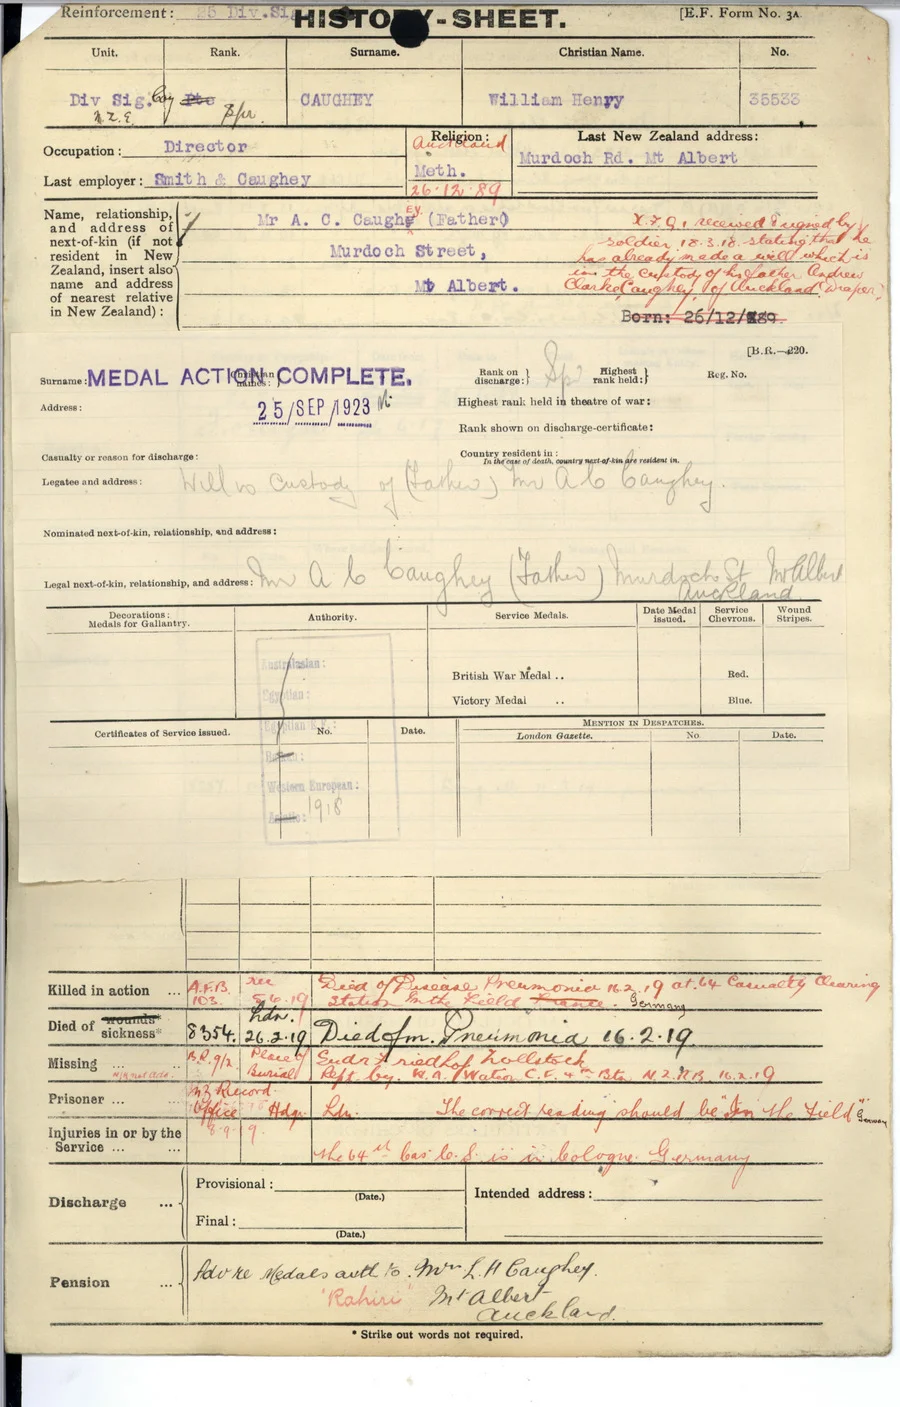 Reinforcement: 25 Div. Sig
HISTORY-SHEET.
[E.F. Form No. 3A
Unit. Rank. Surname. Christian Name. No.
Div Sig. Coy Pte CAUGHEY William Henry 35533
N.Z.E. Spr.
Occupation: Director
Last employer: Smith & Caughey
Religion:
Auckland
Meth.
26.12.89
Last New Zealand address:
Murdoch Rd. Mt Albert
Name, relationship, and address of next-of-kin (if not resident in New Zealand, insert also name and address of nearest relative in New Zealand):
Mr A. C. Caughey (Father)
Murdoch Street,
Mt Albert.
received signed by
soldier 18.3.18. stating that he
has already made a will which is
in the custody of his father Andrew
Clarke Caughey, of Auckland Draper.
Born: 26/12/
[B.R.—220.
Surname: Christian names:
MEDAL ACTION COMPLETE.
25/SEP/1923
Rank on discharge: Spr Highest rank held: Reg. No.
Address:
Highest rank held in theatre of war:
Rank shown on discharge-certificate:
Casualty or reason for discharge:
Country resident in:
In the case of death, country next-of-kin are resident in.
Legatee and address: Will in custody of (Father) Mr A C Caughey.
Nominated next-of-kin, relationship, and address:
Legal next-of-kin, relationship, and address: Mr A C Caughey (Father) Murdoch St Mt Albert
Auckland
Decorations: Medals for Gallantry. Authority. Service Medals. Date Medal issued. Service Chevrons. Wound Stripes.
Australasian:
Egyptian:
Egyptian E.F.:
Western European:
1918
British War Medal .. Red.
Victory Medal .. Blue.
Certificates of Service issued. No. Date.
MENTION IN DESPATCHES.
London Gazette. No. Date.
Killed in action ... A.F.B. 103. rec 8.6.19 Died of Disease Pneumonia 16.2.19 at 64 Casualty Clearing
Station In the Field France. Germany
Died of wounds* sickness* 8354. Ldn. 26.2.19 Died fm. Pneumonia 16.2.19
Missing ... B.R. 9/2 Place of Burial Sudr Friedhof Zollstock
Rept. by. W.A. Watson C.F. 4th Btn. N.Z.R.B. 16.2.19
Prisoner ... NZ Record Office Hdqr. Ldn. The correct reading should be "In the Field" Germany
8.9.19.
Injuries in or by the Service ... the 64th Cas. C.S. is in Cologne Germany
Discharge ... Provisional: (Date.) Intended address:
Final: (Date.)
Pension ... Adv re Medals auth to. Mrs L. H Caughey.
"Rahiri" Mt Albert
Auckland.
* Strike out words not required.